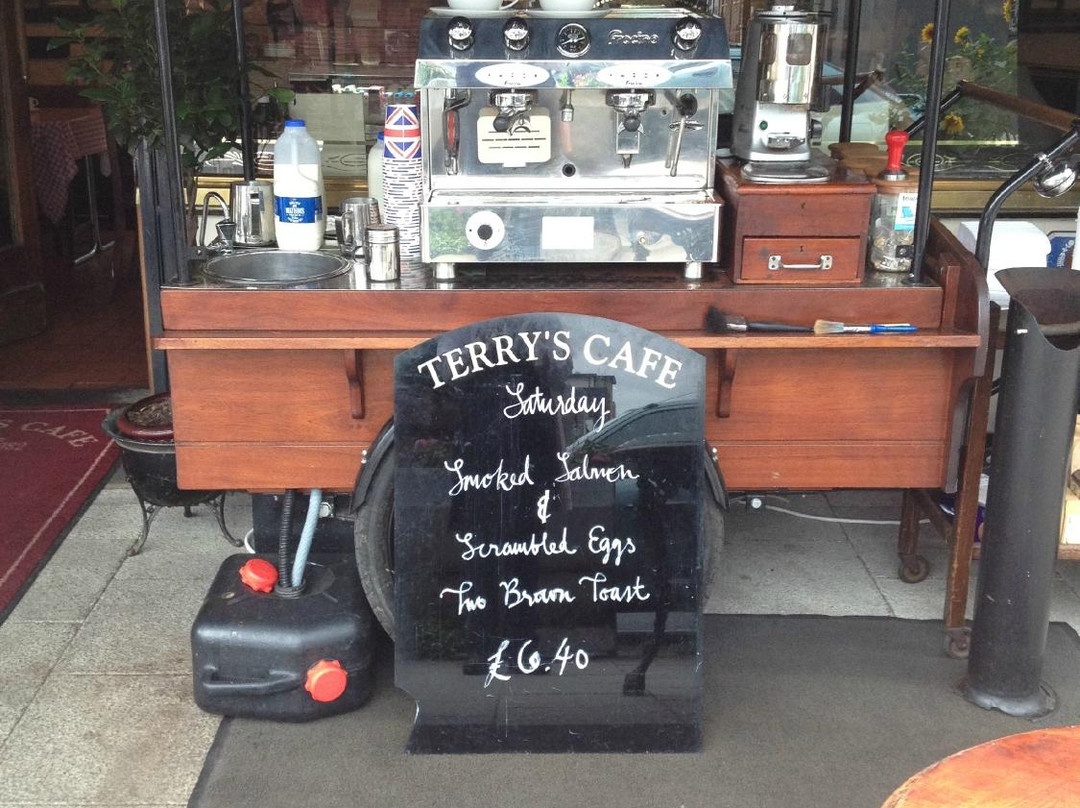 Fracino
TERRY'S CAFE
Saturday
Smoked Salmon
&
Scrambled Eggs
Two Brown Toast
£6.40
CAFE